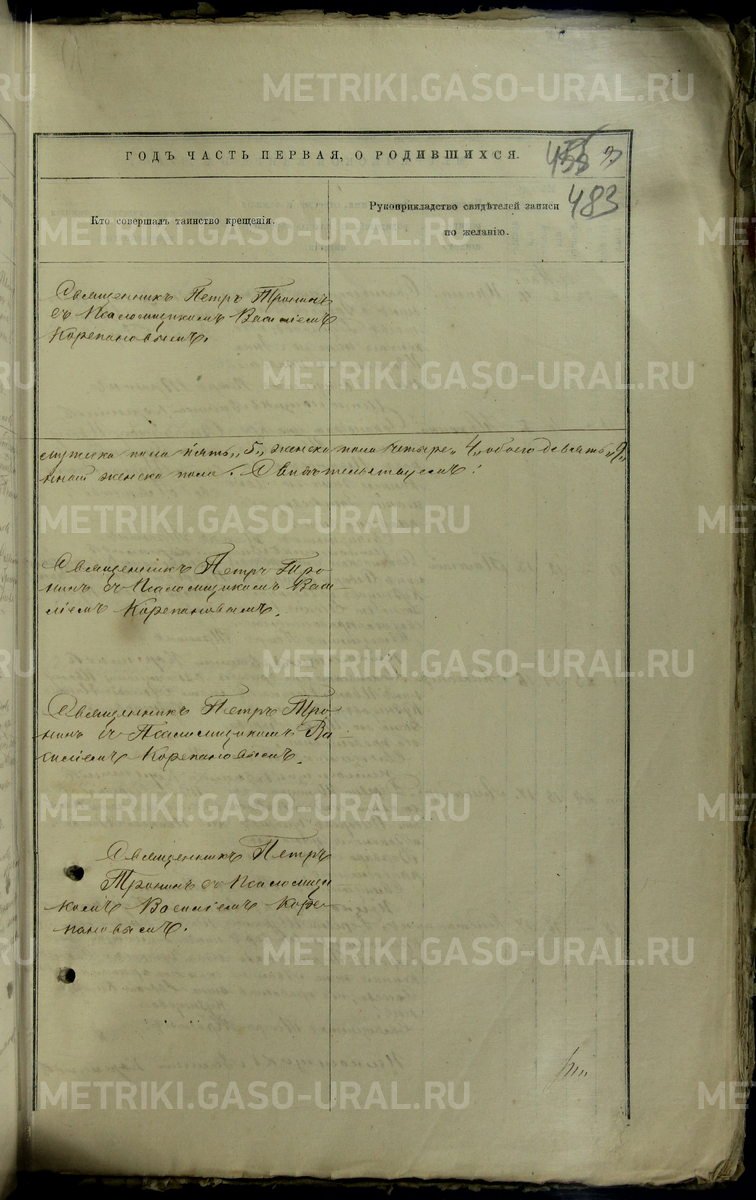 METRIKI.GASO-URAL.RU
ГОДЪ ЧАСТЬ ПЕРВАЯ, О РОДИВШИХСЯ.
483
Кто совершалъ таинство крещенія.
Рукоприкладство свидѣтелей записи
по желанію.
Священникъ Петръ Тронинъ
съ Псаломщикомъ Василіемъ
Корепановымъ.
мужска пола пять „5„ женска пола четыре „4„ обоего девять „9„
женска пола. Свидѣтельствуемъ:
Священникъ Петръ Тро
нинъ съ Псаломщикомъ Васи-
ліемъ Корепановымъ.
Священникъ Петръ Тро
нинъ съ Псаломщикомъ Ва
силіемъ Корепановымъ.
Священникъ Петръ
Тронинъ съ Псаломщи
комъ Василіемъ Коре-
пановымъ.